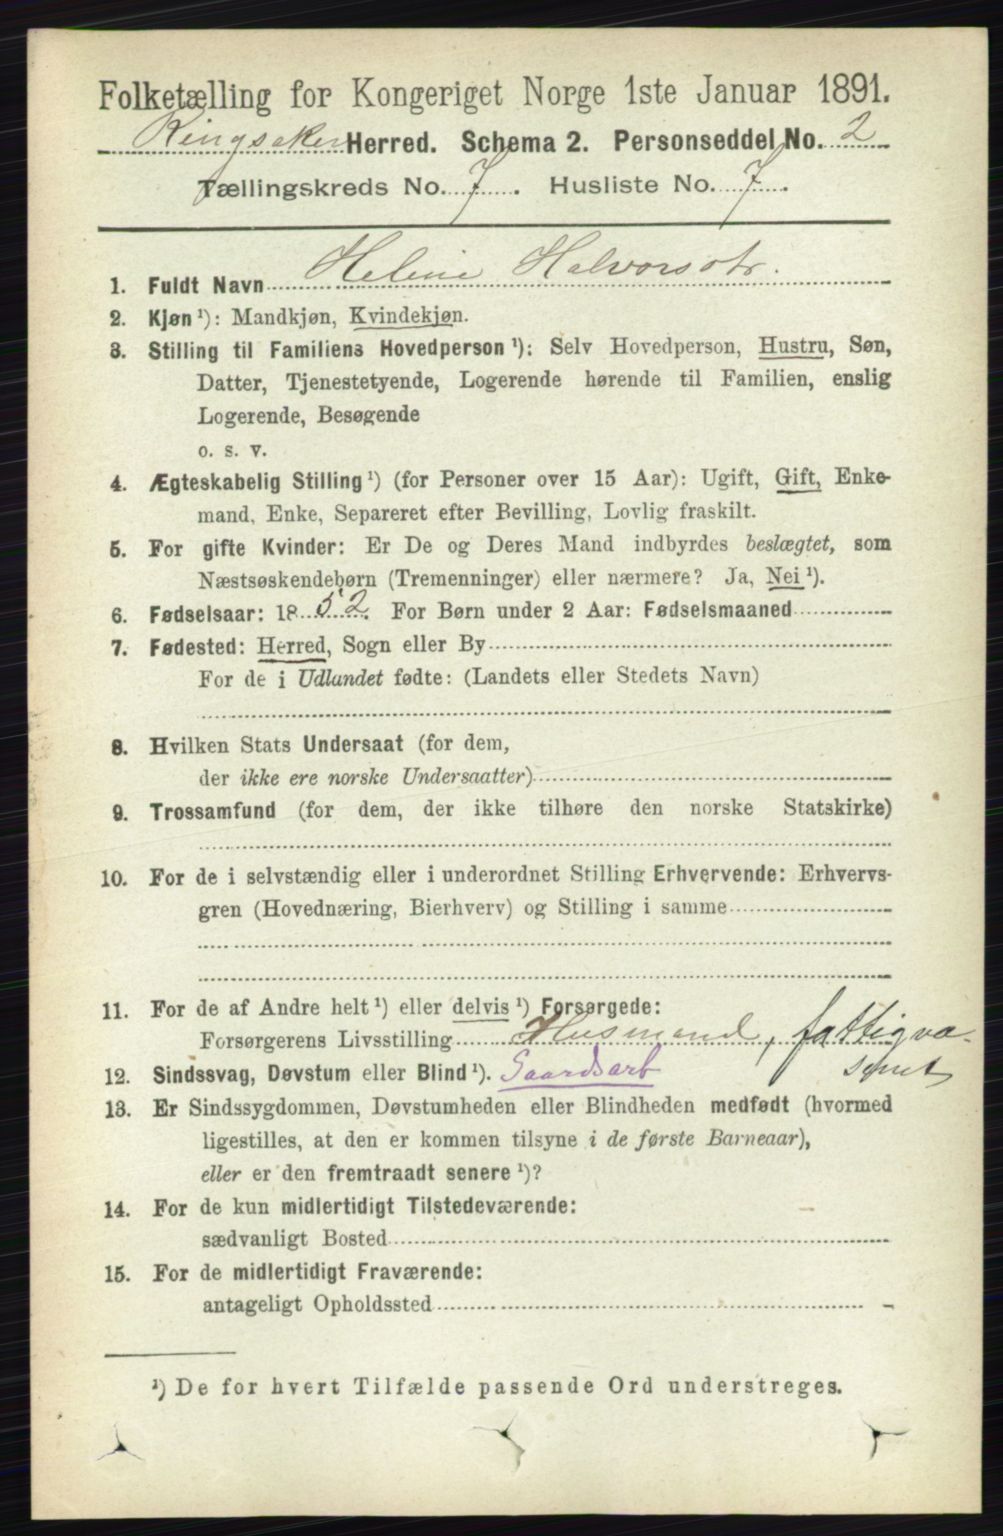 Folketælling for Kongeriget Norge 1ste Januar 1891.
Ringsaker Herred. Schema 2. Personseddel No. 2
Tællingskreds No. 7. Husliste No. 7.
1. Fuldt Navn Helene Halvorsdtr.
2. Kjøn ¹): Mandkjøn, Kvindekjøn.
3. Stilling til Familiens Hovedperson ¹): Selv Hovedperson, Hustru, Søn,
Datter, Tjenestetyende, Logerende hørende til Familien, enslig
Logerende, Besøgende
o. s. v.
4. Ægteskabelig Stilling ¹) (for Personer over 15 Aar): Ugift, Gift, Enke-
mand, Enke, Separeret efter Bevilling, Lovlig fraskilt.
5. For gifte Kvinder: Er De og Deres Mand indbyrdes beslægtet, som
Næstsøskendebørn (Tremenninger) eller nærmere? Ja, Nei ¹).
6. Fødselsaar: 1852. For Børn under 2 Aar: Fødselsmaaned
7. Fødested: Herred, Sogn eller By
For de i Udlandet fødte: (Landets eller Stedets Navn)
8. Hvilken Stats Undersaat (for dem,
der ikke ere norske Undersaatter)
9. Trossamfund (for dem, der ikke tilhøre den norske Statskirke)
10. For de i selvstændig eller i underordnet Stilling Erhvervende: Erhvervs-
gren (Hovednæring, Bierhverv) og Stilling i samme
11. For de af Andre helt ¹) eller delvis ¹) Forsørgede:
Forsørgerens Livsstilling Husmand, fattigvæ-
12. Sindssvag, Døvstum eller Blind ¹). Gaardsarb
13. Er Sindssygdommen, Døvstumheden eller Blindheden medfødt (hvormed
ligestilles, at den er kommen tilsyne i de første Barneaar),
eller er den fremtraadt senere ¹)?
14. For de kun midlertidigt Tilstedeværende:
sædvanligt Bosted
15. For de midlertidigt Fraværende:
antageligt Opholdssted
¹) De for hvert Tilfælde passende Ord understreges.